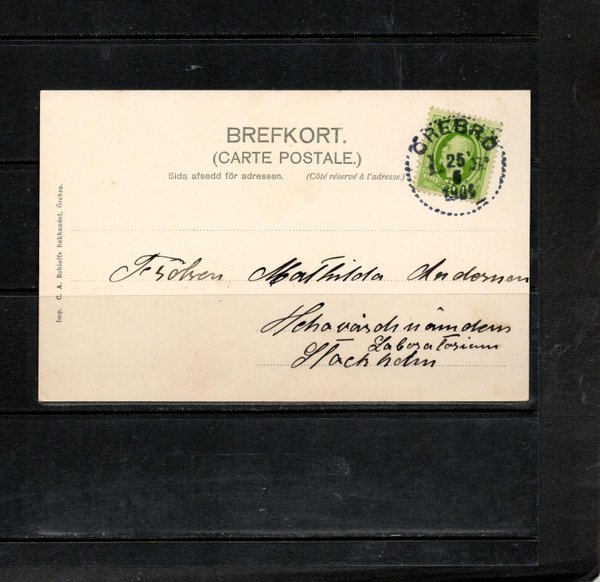 BREFKORT.
(CARTE POSTALE.)
Sida afsedd för adressen. (Côté réservé à l'adresse.)
ÖREBRO
25
6
Imp. C. A. Rohloffs Bokhandel, Örebro.
Fröken Mathilda Anderson
Laboratorium
Stockholm